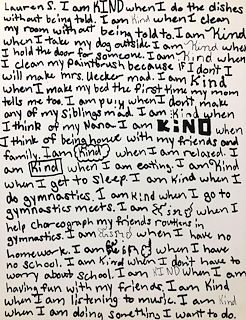 Lauren S. I am KIND when I do the dishes
without being told. I am Kind when I clean
my room without being told to. I am Kind
when I take my dog outside. I am Kind when
I hold the door for someone. I am Kind when
I clean my paintbrush because if I don't I
will make Mrs. Uecker mad. I am Kind
when I make my bed the first time my mom
tells me too. I am when I don't make
any of my siblings mad. I am Kind when
I think of my Nana. I am KiND when
I think of being home with my friends and
family. I am Kind when I am relaxed. I
am Kind when I am eating. I am Kind
when I get to sleep. I am Kind when I
do gymnastics. I am Kind when I go to
gymnastics meets. I am Kind when I
help choreograph my friends routines in
gymnastics. I am Kind when I have no
homework. I am Kind when I have
no school. I am Kind when I don't have to
worry about school. I am KIND when I am
having fun with my friends. I am Kind
when I am listening to music. I am Kind
when I am doing something I want to do.